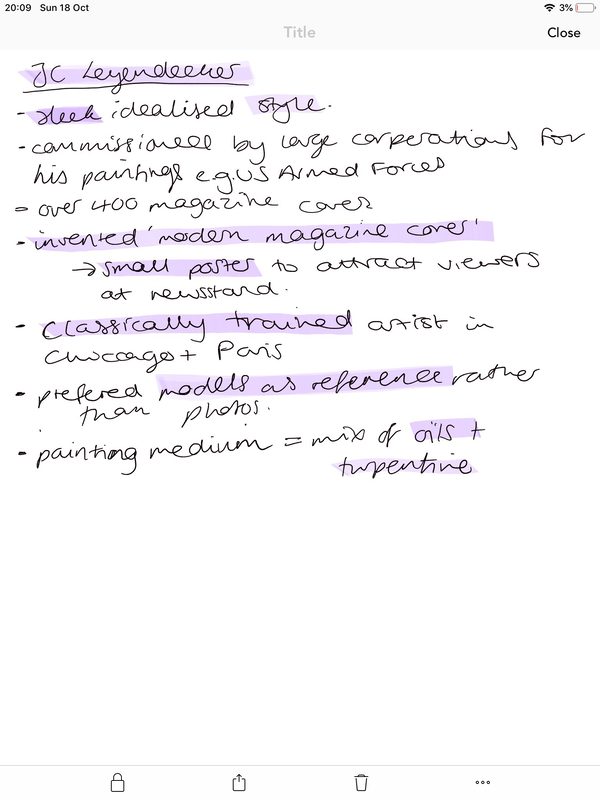 20:09 Sun 18 Oct 3%
Title Close
JC Leyendecker
- sleek idealised style.
- commissioned by large corperations for
his paintings e.g. US Armed Forces
- over 400 magazine covers
- invented 'modern magazine cover'
→ small poster to attract viewers
at newsstand.
- Classically trained artist in
Chiccago + Paris
- prefered models as reference rather
than photos.
- painting medium = mix of oils +
turpentine